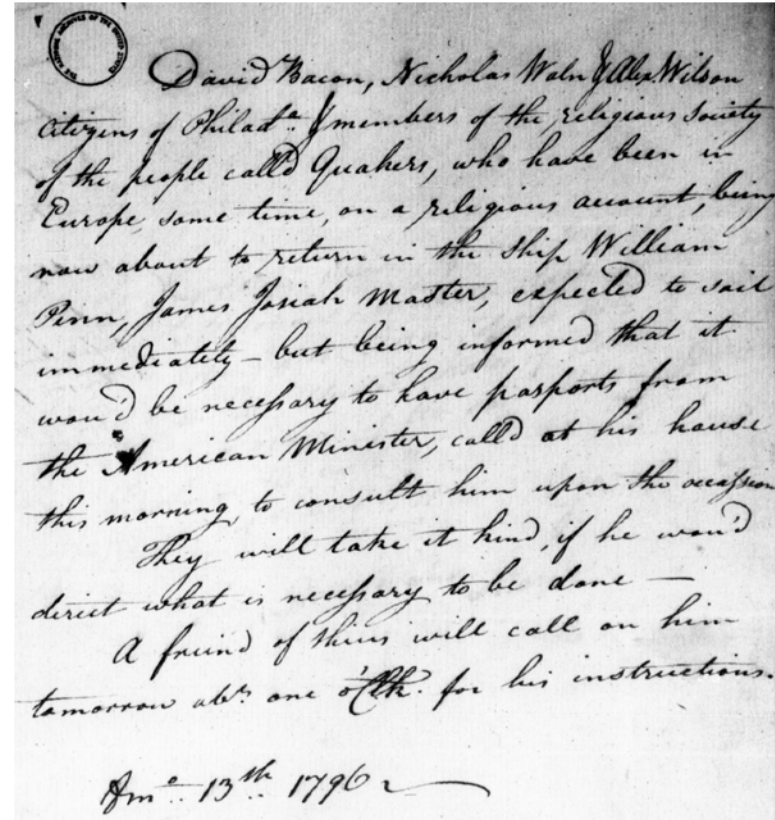 THE NATIONAL ARCHIVES OF THE UNITED STATES
David Bacon, Nicholas Waln & Alex Wilson
Citizens of Philad.a & members of the religious Society
of the people call'd Quakers, who have been in
Europe some time, on a religious account, being
now about to return in the Ship William
Penn, James Josiah Master, expected to sail
immediately – but being informed that it
wou'd be necessary to have pasports from
the American Minister, call'd at his house
this morning, to consult him upon the occassion
They will take it kind, if he wou'd
direct what is necessary to be done —
A friend of theirs will call on him
tomorrow abt. one o'Clk. for his instructions.
13th 1796